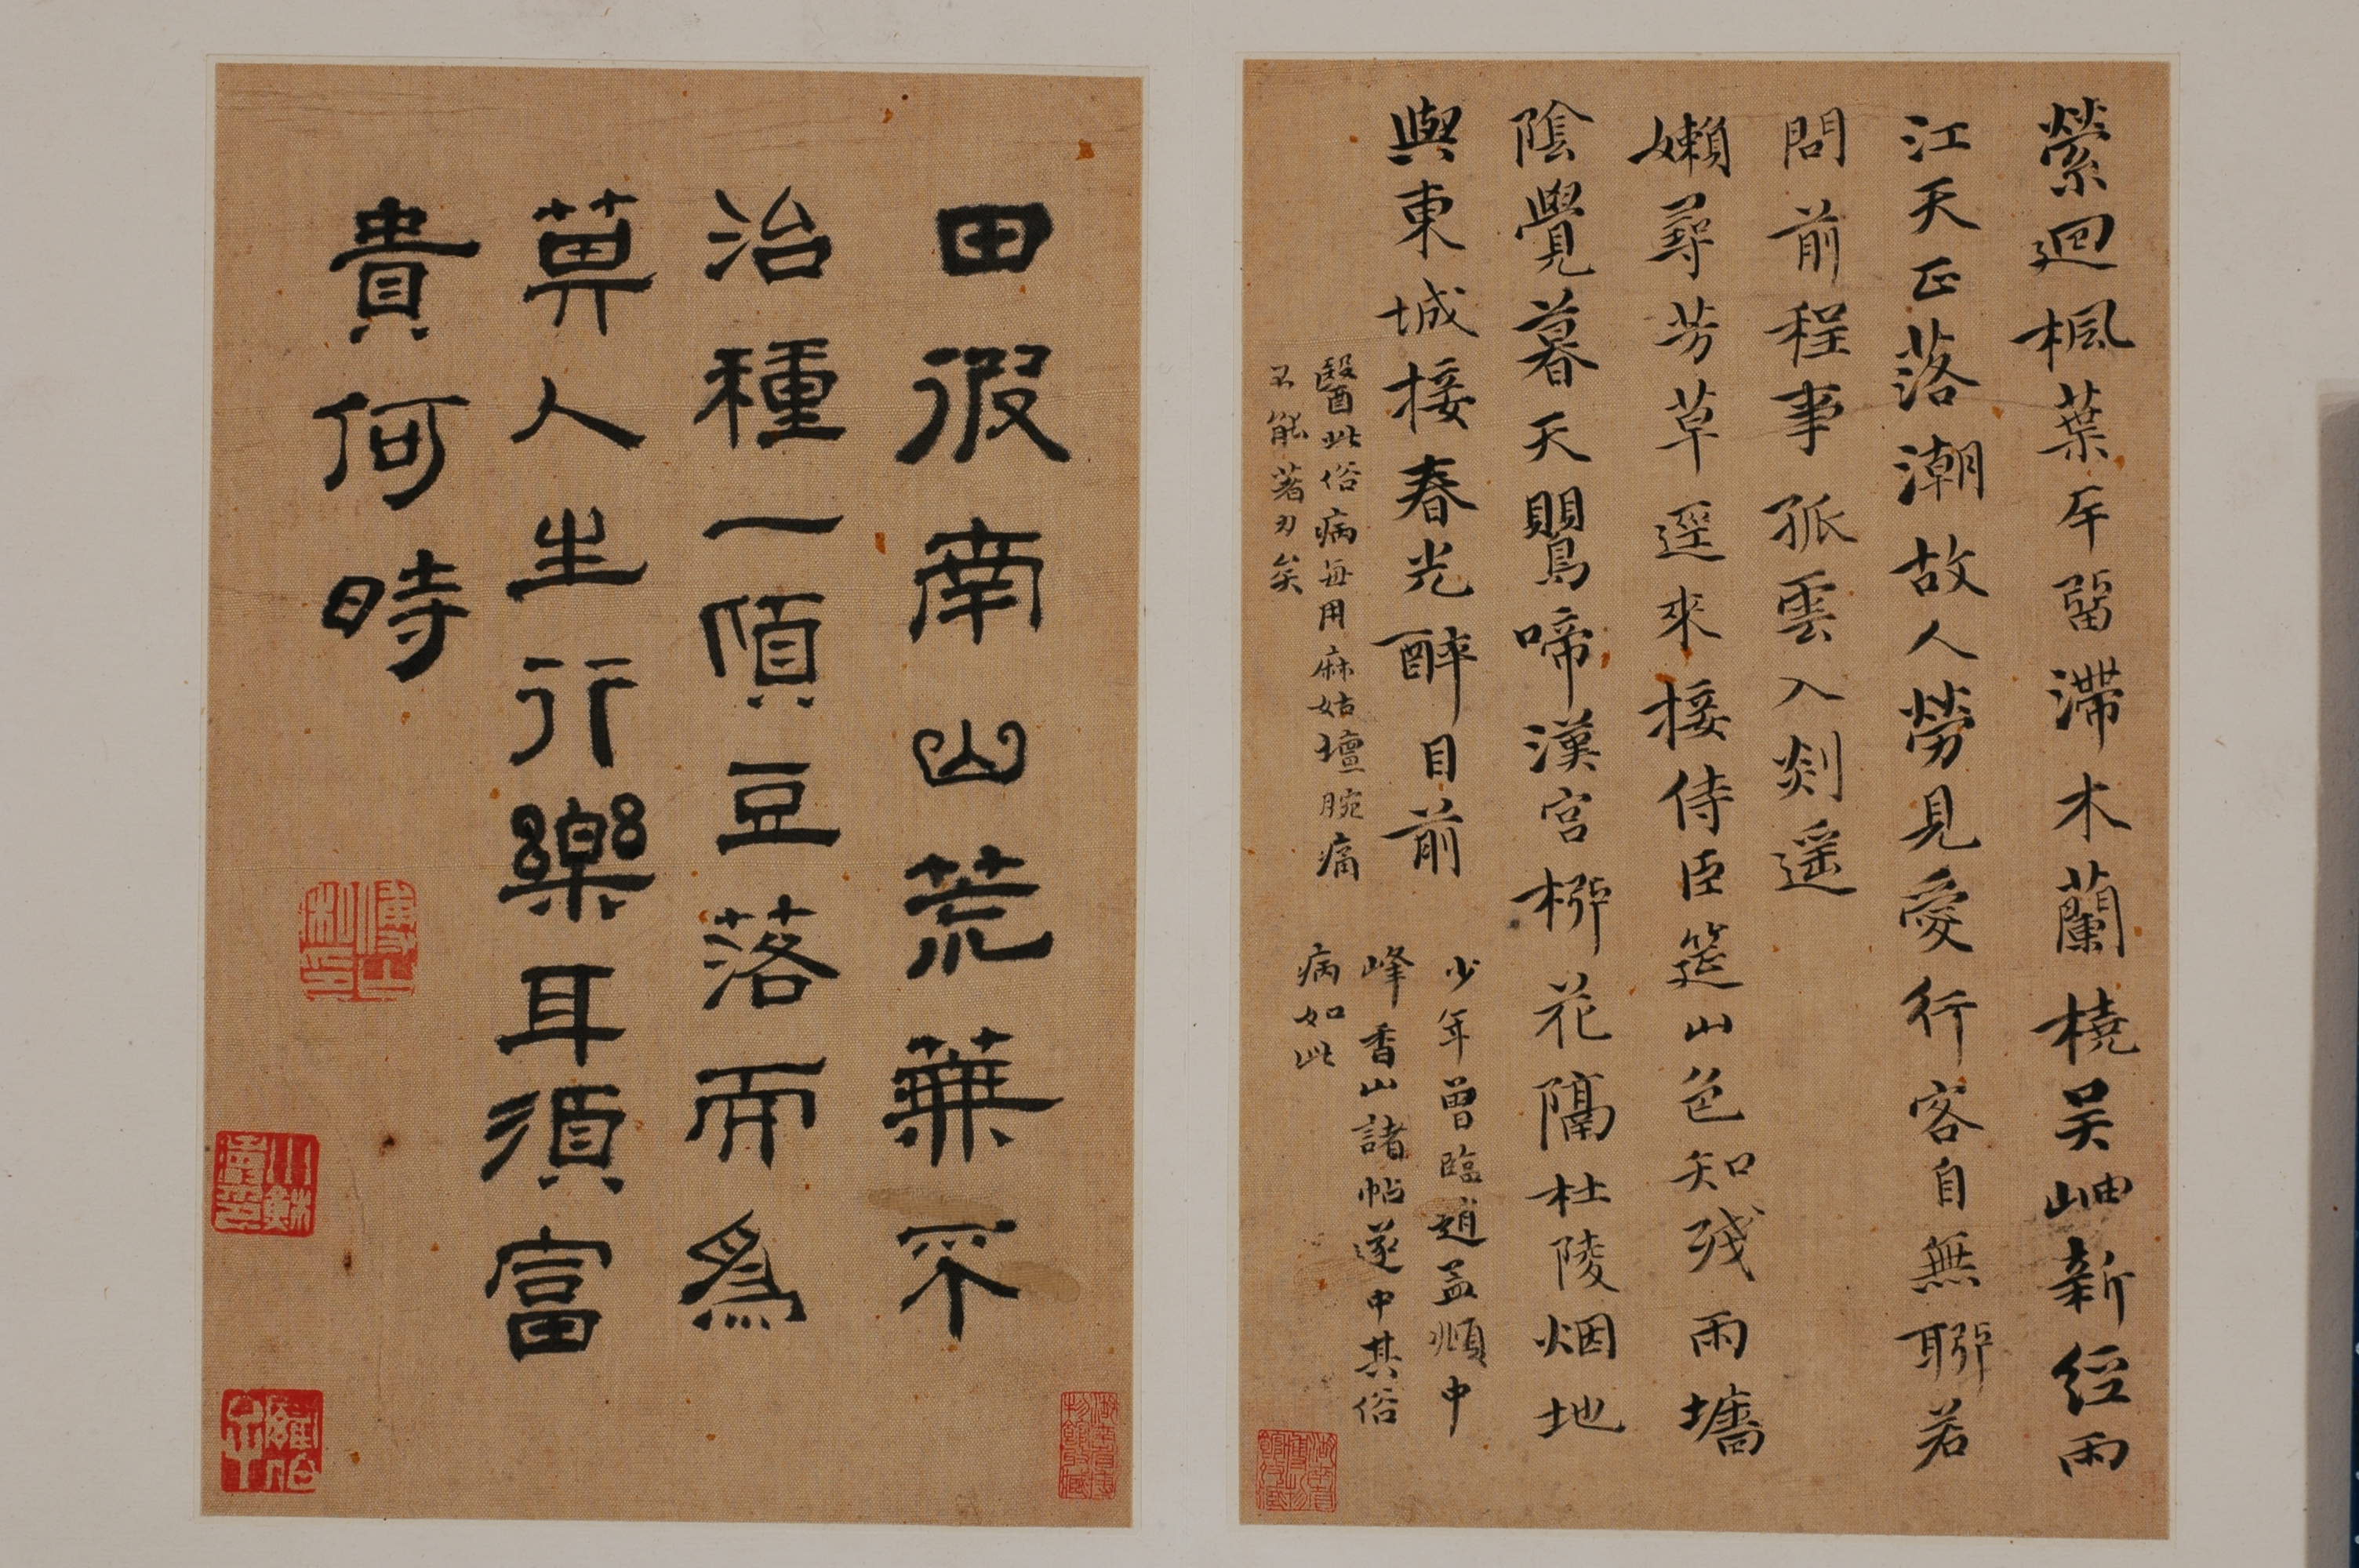 縈迴楓葉岸留滯木蘭橈吴岫新經雨
江天正落潮故人勞見愛行客自無聊若
問前程事孤雲入剡遥
嬾尋芳草逕來接侍臣筵山色知殘雨墻
陰覺暮天鸎啼漢宮栁花隔杜陵烟地
與東城接春光醉目前
少年曾臨趙孟順中
峰香山諸帖遂中其俗
病如此
醫此俗病每用麻姑壇腕痛
不能著力矣
田彼南山荒蕪不
治種一頃豆落而爲
萁人生行樂耳須富
貴何時